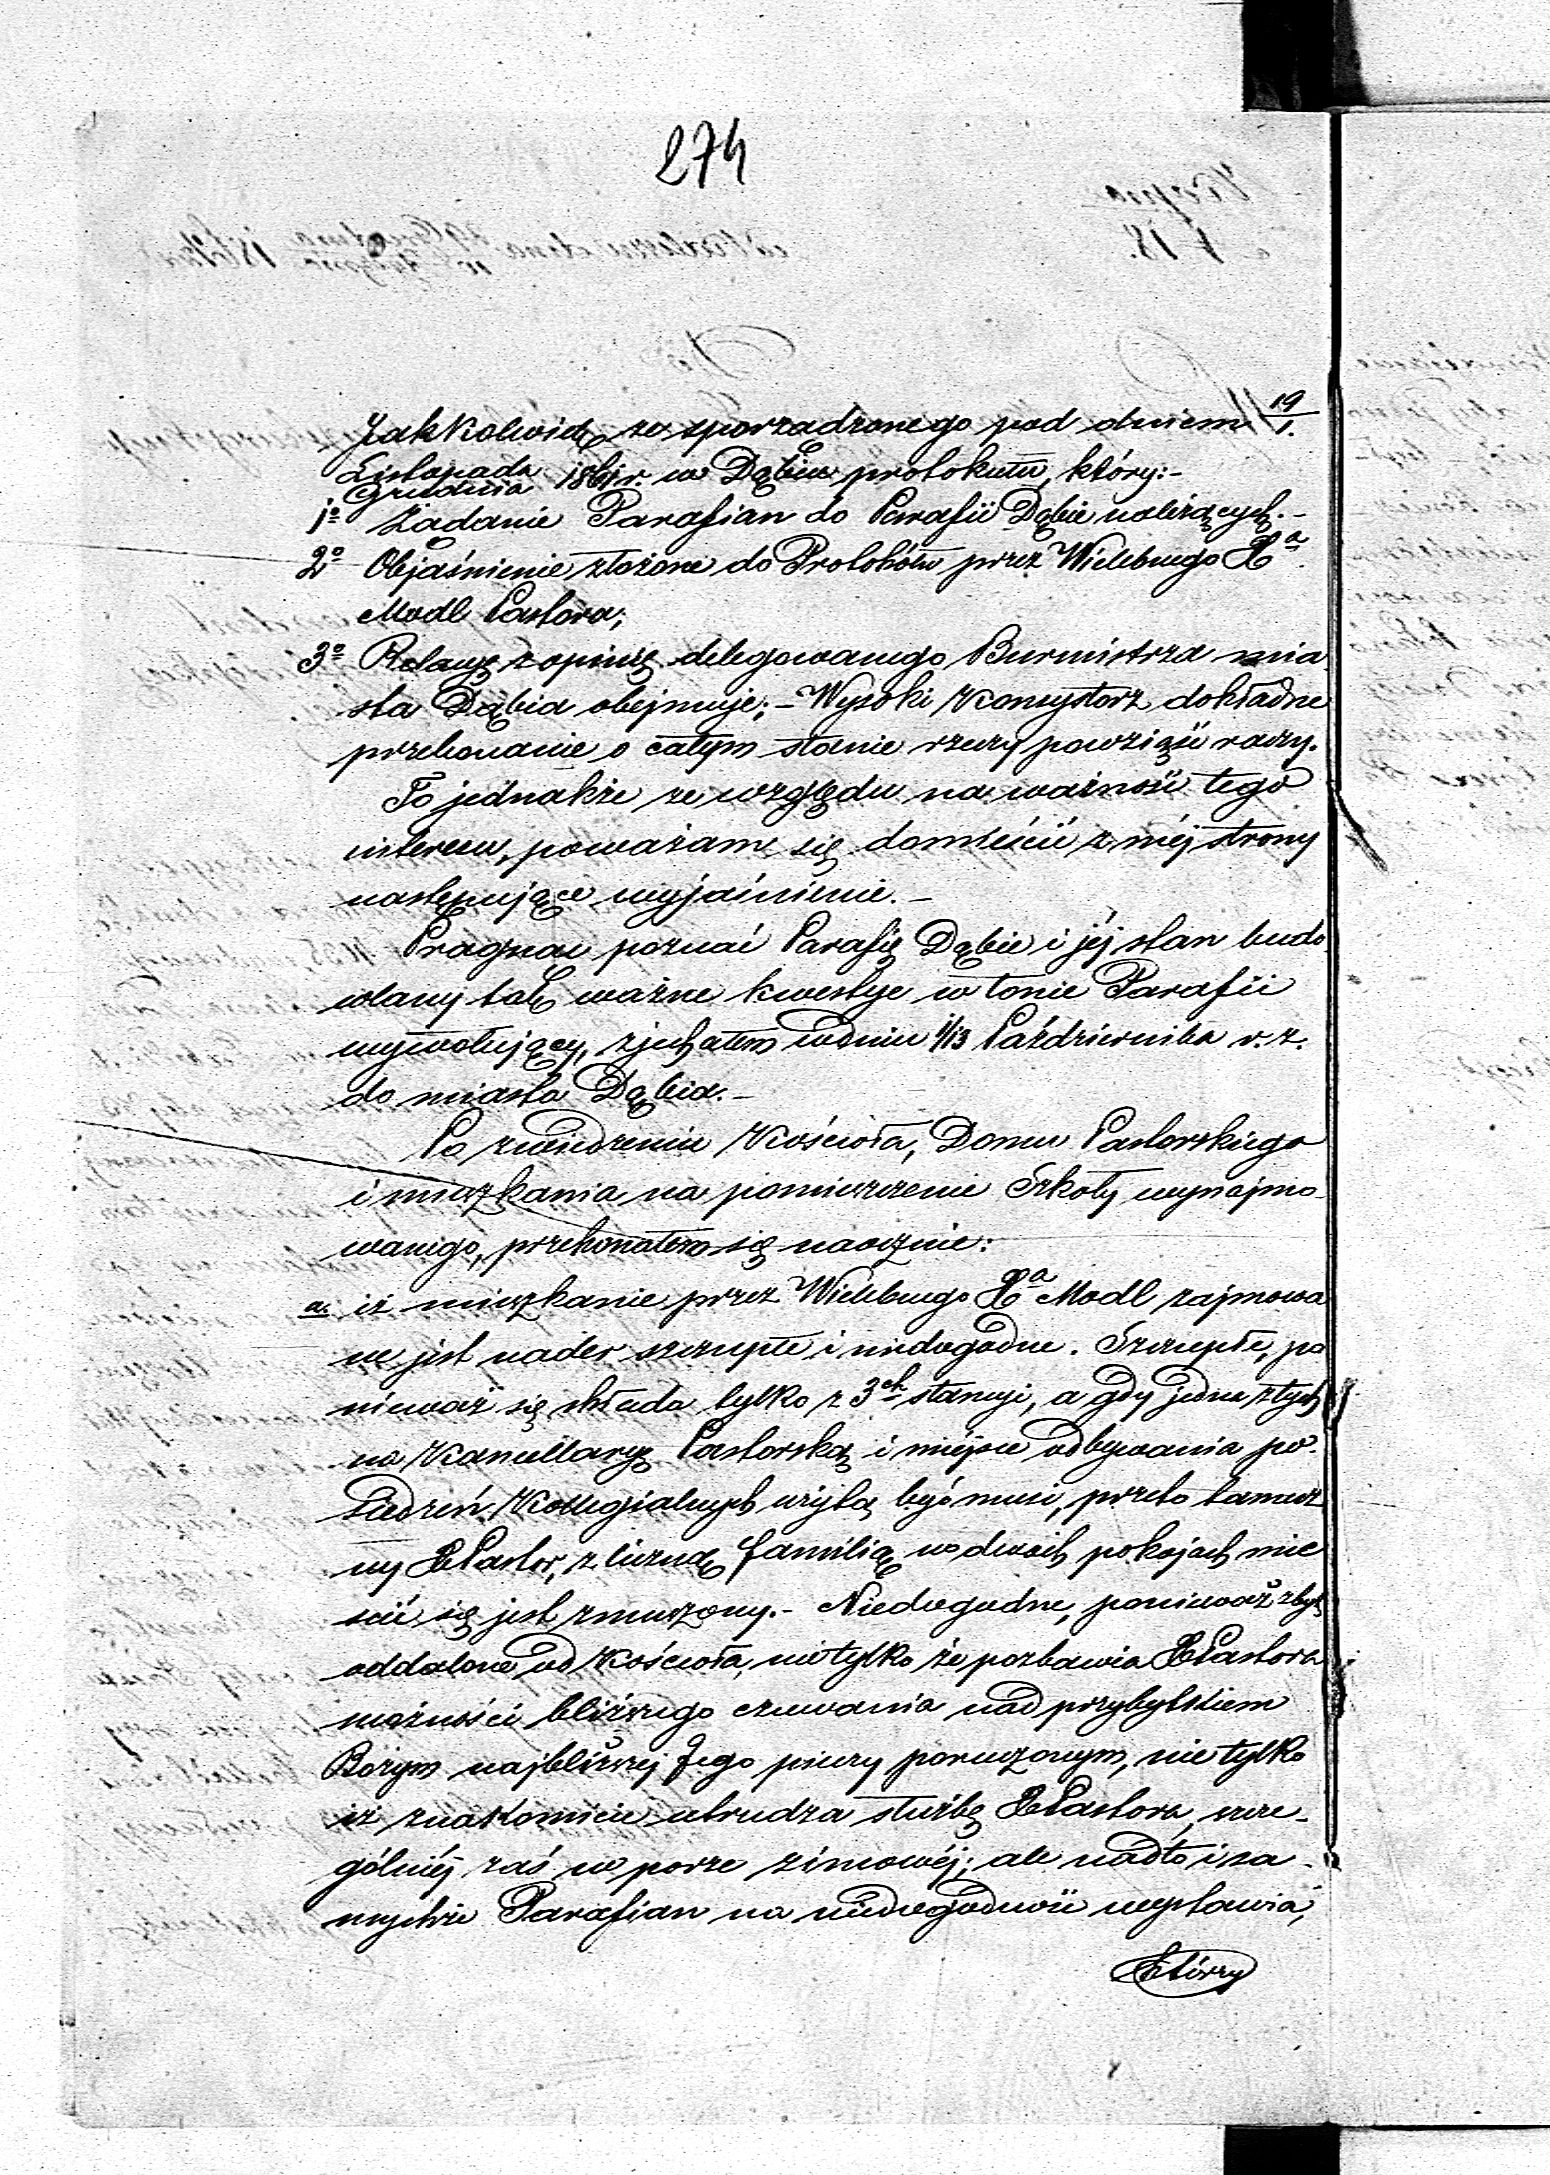 274
Jakkolwiek ze sporządzonego pod dniem 19/1.
Listopada
Grudnia 1861 r. w Dąbiu protokułu, który:-
1o Żądanie Parafian do Parafii Dąbie należących.-
2o Objaśnienie złożone do Protokółu przez Wielebnego Xa
Modl Pastora;
3o Relacyę z opinię delegowanego Burmistrza mia
sta Dąbia obejmuje; - Wysoki Konsystorz dokładne
przekonanie o całym stanie rzeczy powziąść raczy.
To jednakże ze względu na ważność tego
interesu, poważam się domieścić z méj strony
następujące wyjaśnienie.-
Pragnąc poznać Parafię Dąbie i jéj stan budo
wlany tak ważne kwestye w łonie Parafii
wywołujący, zjechałem w dniu 1/13 Października r. z.
do miasta Dąbia.-
Po zwiedzeniu Kościoła, Domu Pastorskiego
i mieszkania na pomieszczenie Szkoły wynajmo
wanego, przekonałem się naocznie:
a. iż mieszkanie przez Wielebnego Xa Modl zajmowa
ne jest nader szczupłe i niedogodne. Szczupłe, po
nieważ się składa tylko z 3ch stancyi, a gdy jedna z tych
na Kancellaryę Pastorską i miejsce odbywania po-
siedzeń Kollegialnych użytą być musi, przeto tamecz
ny X Pastor, z liczną familią w dwóch pokojach mie
ścić się jest zmuszony.- Niedogodne, ponieważ zbyt
oddalone od Kościoła, nie tylko że pozbawia X Pastora
możności bliższego czuwania nad przybytkiem
Bożym najbliższej Jego pieczy poruczonym, nie tylko
iż znakomicie utrudza służbę X Pastora, szcze-
gólniéj zaś w porze zimowéj; ale nadto i sa-
mychże Parafian na niedogodność wystawia,
którzy